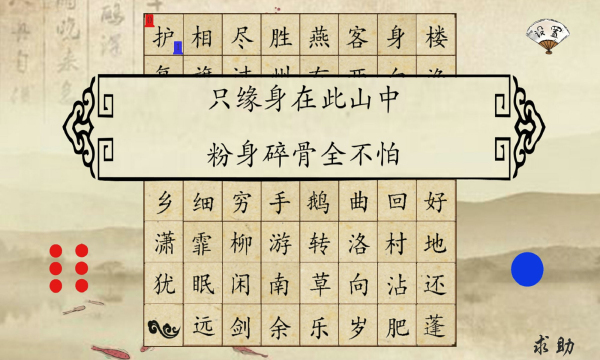 护 相 尽 胜 燕 客 身 楼
设置
只缘身在此山中
粉身碎骨全不怕
乡 细 穷 手 鹅 曲 回 好
潇 霏 柳 游 转 洛 村 地
犹 眠 闲 南 草 向 沾 还
远 剑 余 乐 岁 肥 蓬
求助